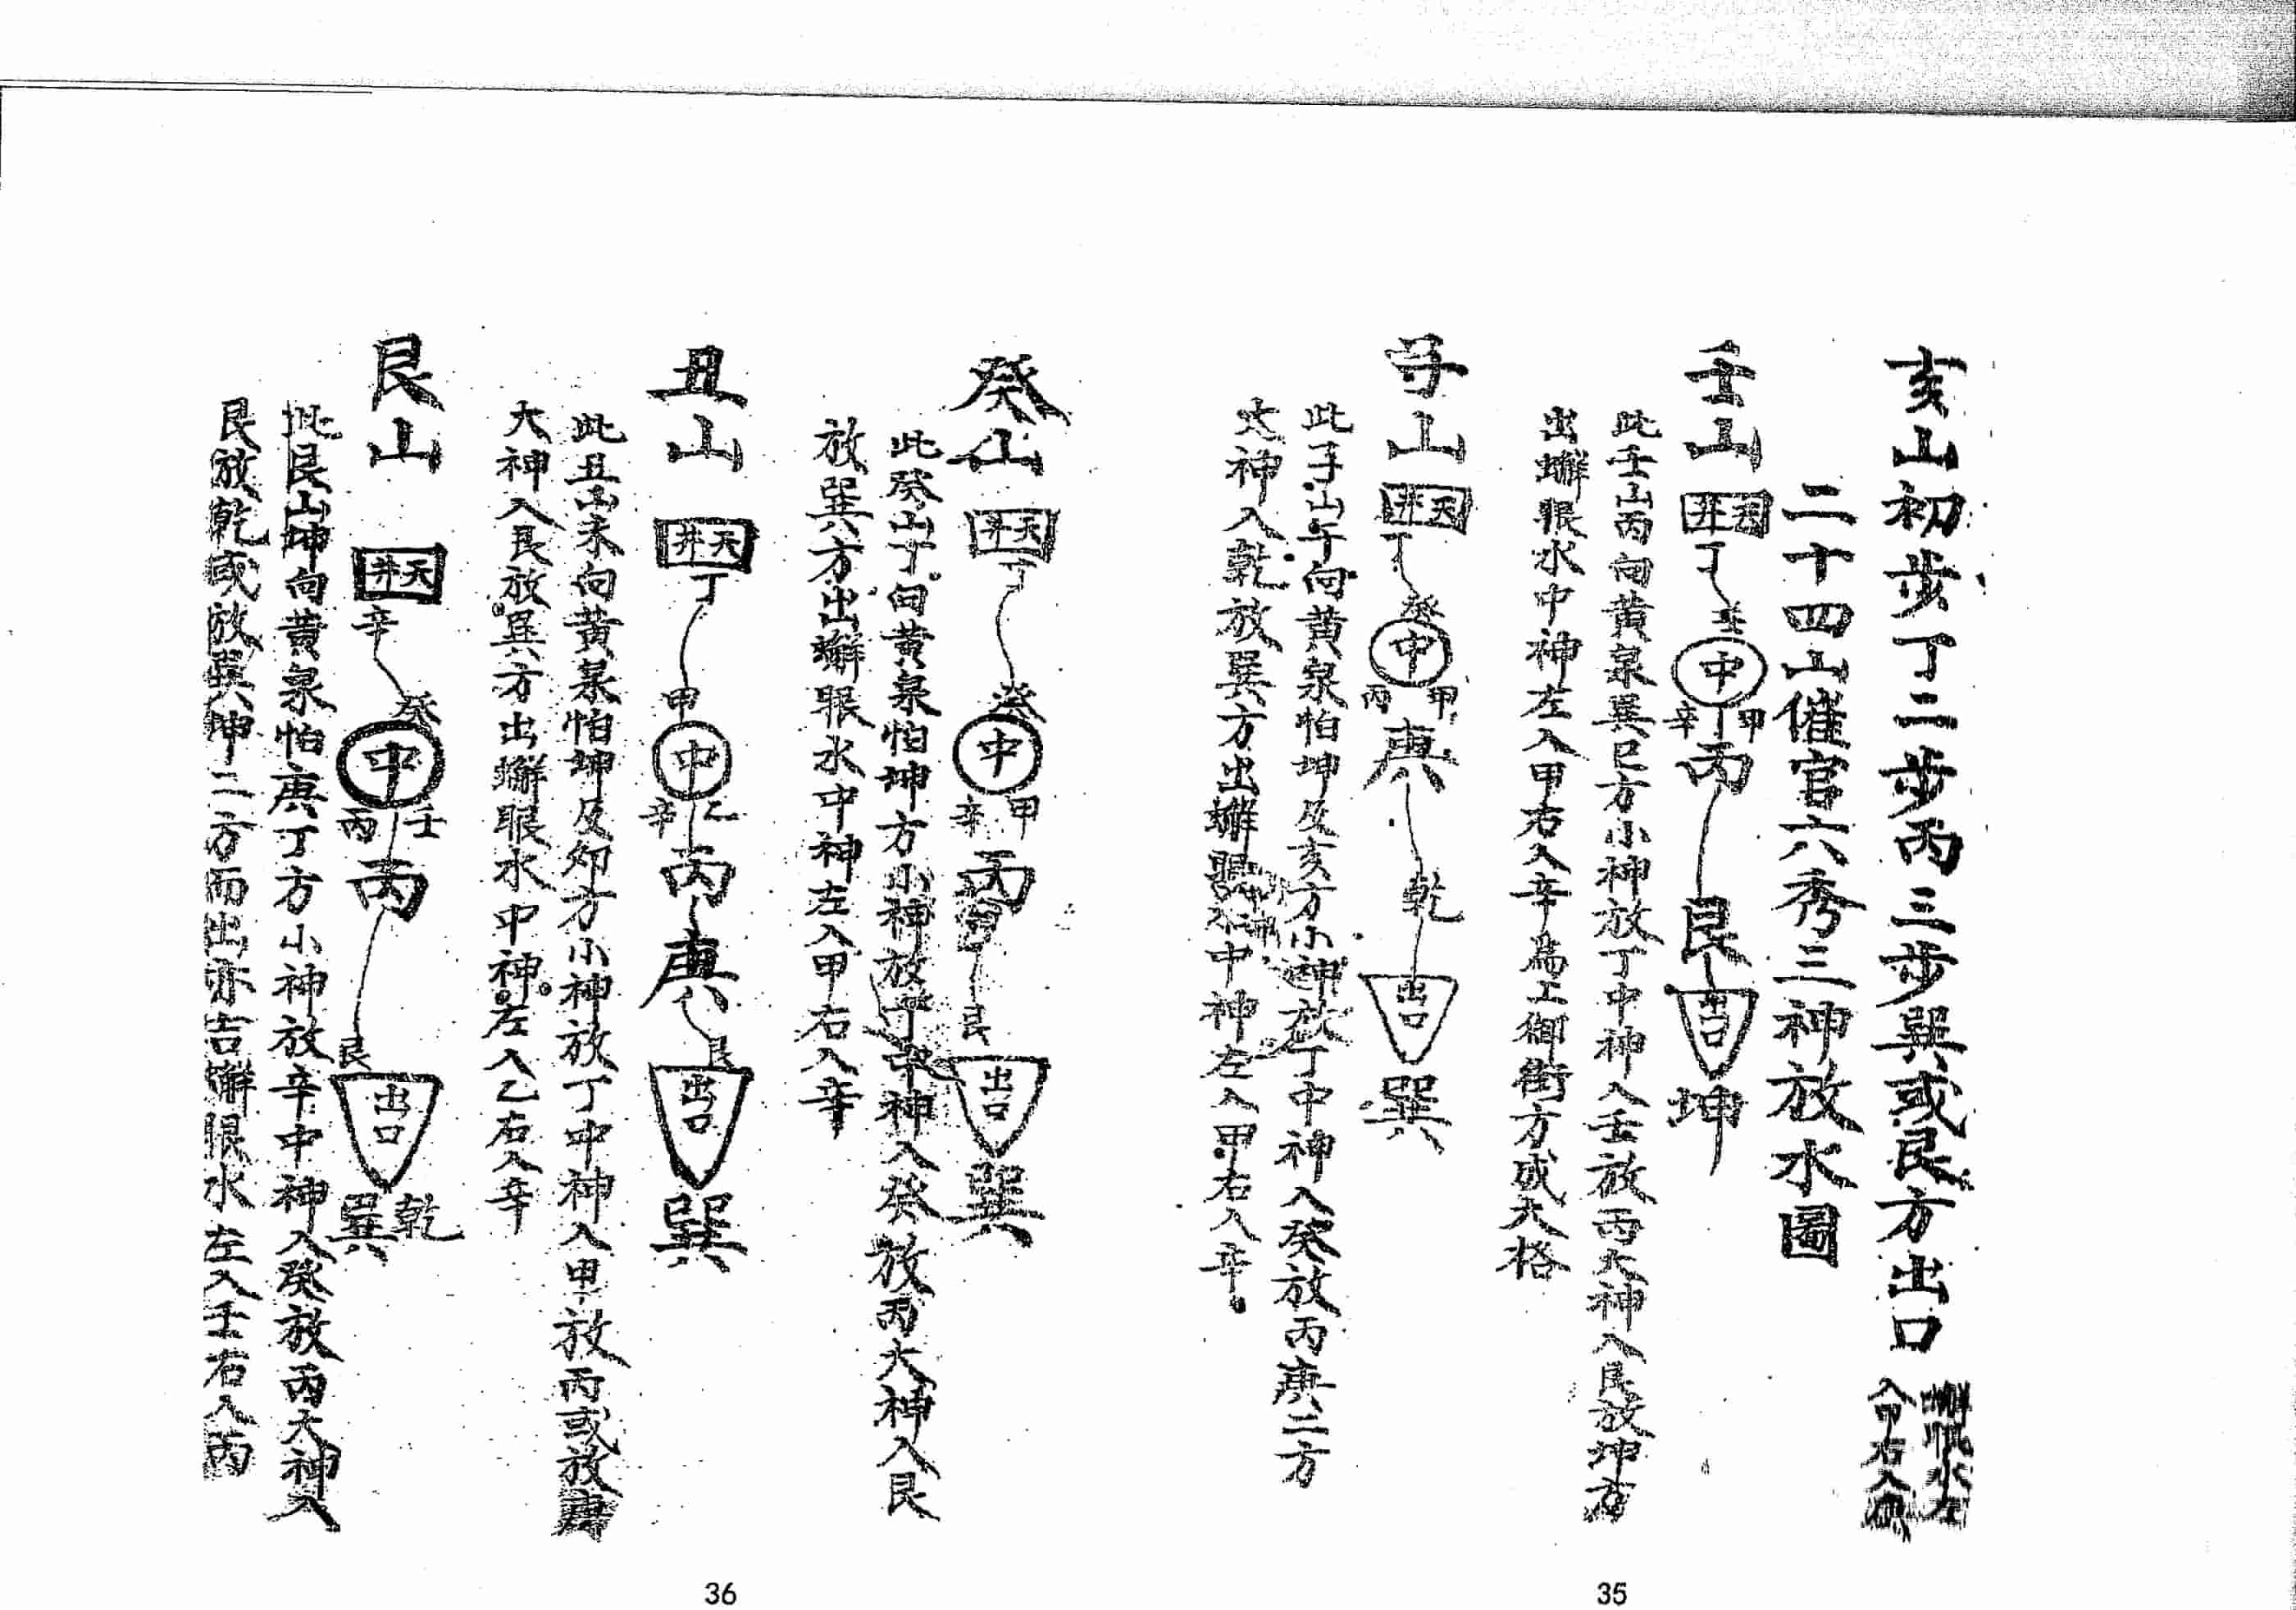 亥山初步丁二步丙三步巽或艮方出口
蠏眼水左
入甲右入
二十四山催官六秀三神放水圖
壬山
天井
丁
壬
中
甲
辛
丙
艮
出口
坤
此壬山丙向黃泉巽巳方小神放丁中神入壬放丙大神入艮放坤方
出蠏眼水中神左入甲右入辛為上御街方成大格
子山
天井
丁
癸
中
甲
丙
庚
乾
出口
巽
此子山午向黃泉怕坤及亥方小神放丁中神入癸放丙庚二方
大神入乾放巽方出蠏眼水中神左入甲右入辛
癸山
天井
丁
癸
中
甲
辛
丙
艮
出口
巽
此癸山丁向黃泉怕坤方小神放丁中神入癸放丙大神入艮
放巽方出蠏眼水中神左入甲右入辛
丑山
天井
丁
甲
中
乙
辛
丙
庚
艮
出口
巽
此丑山未向黃泉怕坤及卯方小神放丁中神入甲放丙或放庚
大神入艮放巽方出蠏眼水中神左入乙右入辛
艮山
天井
辛
癸
中
壬
丙
丙
艮
出口
乾
巽
此艮山坤向黃泉怕庚丁方小神放辛中神入癸放丙大神入
艮放乾或放巽坤二方而出亦吉蠏眼水左入壬右入丙
35
36